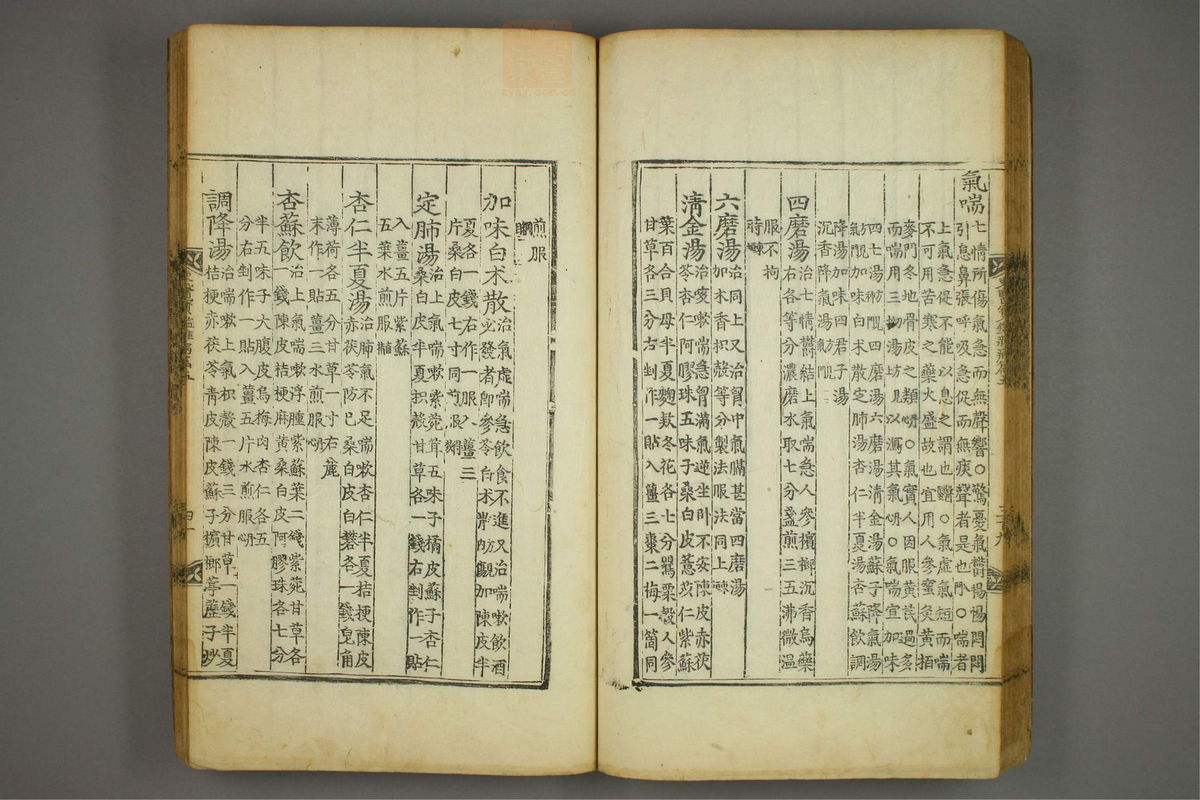 氣喘 七情所傷氣急而無聲響○驚憂氣鬱惕惕悶悶
引息鼻張呼吸急促而無痰聲者是也○喘者
上氣急促不能以息之謂也○氣虛氣短而喘
不可用苦寒之藥火盛故也宜用人參蜜灸黃栢
麥門冬地骨皮之類○氣實人因服黃芪過多
而喘用三拗湯以瀉其氣○氣喘宣加味
四七湯四磨湯六磨湯清金湯蘇子降氣湯
加味白朮散定肺湯杏仁半夏湯杏蘇飮調
降湯加味四君子湯
沉香降氣湯
四磨湯 治七情鬱結上氣喘急人參檳榔沉香烏藥
右各等分濃磨水取七分盞煎三五沸微溫
服不拘
時
六磨湯 治同上又治胷中氣膈甚當四磨湯
加木香枳殼等分製法服法同上
清金湯 治咳嗽喘急胷滿氣逆坐臥不安陳皮赤茯
苓杏仁阿膠珠五味子桑白皮薏苡仁紫蘇
葉百合貝母半夏麴款冬花各七分罌粟殼人參
甘草各三分右剉作一貼入薑三棗二梅一箇同
煎服
加味白朮散 治氣虛喘急飮食不進又治喘嗽飮酒
發者卽參苓白朮加陳皮半
夏各一錢右作一服入薑三
片桑白皮七寸同煎服
定肺湯 治上氣喘嗽紫菀茸五味子橘皮蘇子杏仁
桑白皮半夏枳殼甘草各一錢右剉作一貼
入薑五片紫蘇
五葉水煎服
杏仁半夏湯 治肺氣不足喘嗽杏仁半夏桔梗陳皮
赤茯苓防己桑白皮白礬各一錢皂角
薄荷各五分甘草一寸右麄
末作一貼薑三水煎服
杏蘇飮 治上氣喘嗽浮腫紫蘇葉二錢紫菀甘草各
一錢陳皮桔梗麻黃桑白皮阿膠珠各七分
半五味子大腹皮烏梅肉杏仁各五
分右剉作一貼入薑五片水煎服
調降湯 治喘嗽上氣枳殼一錢三分甘草一錢半夏
桔梗赤茯苓靑皮陳皮蘇子檳榔葶藶子炒